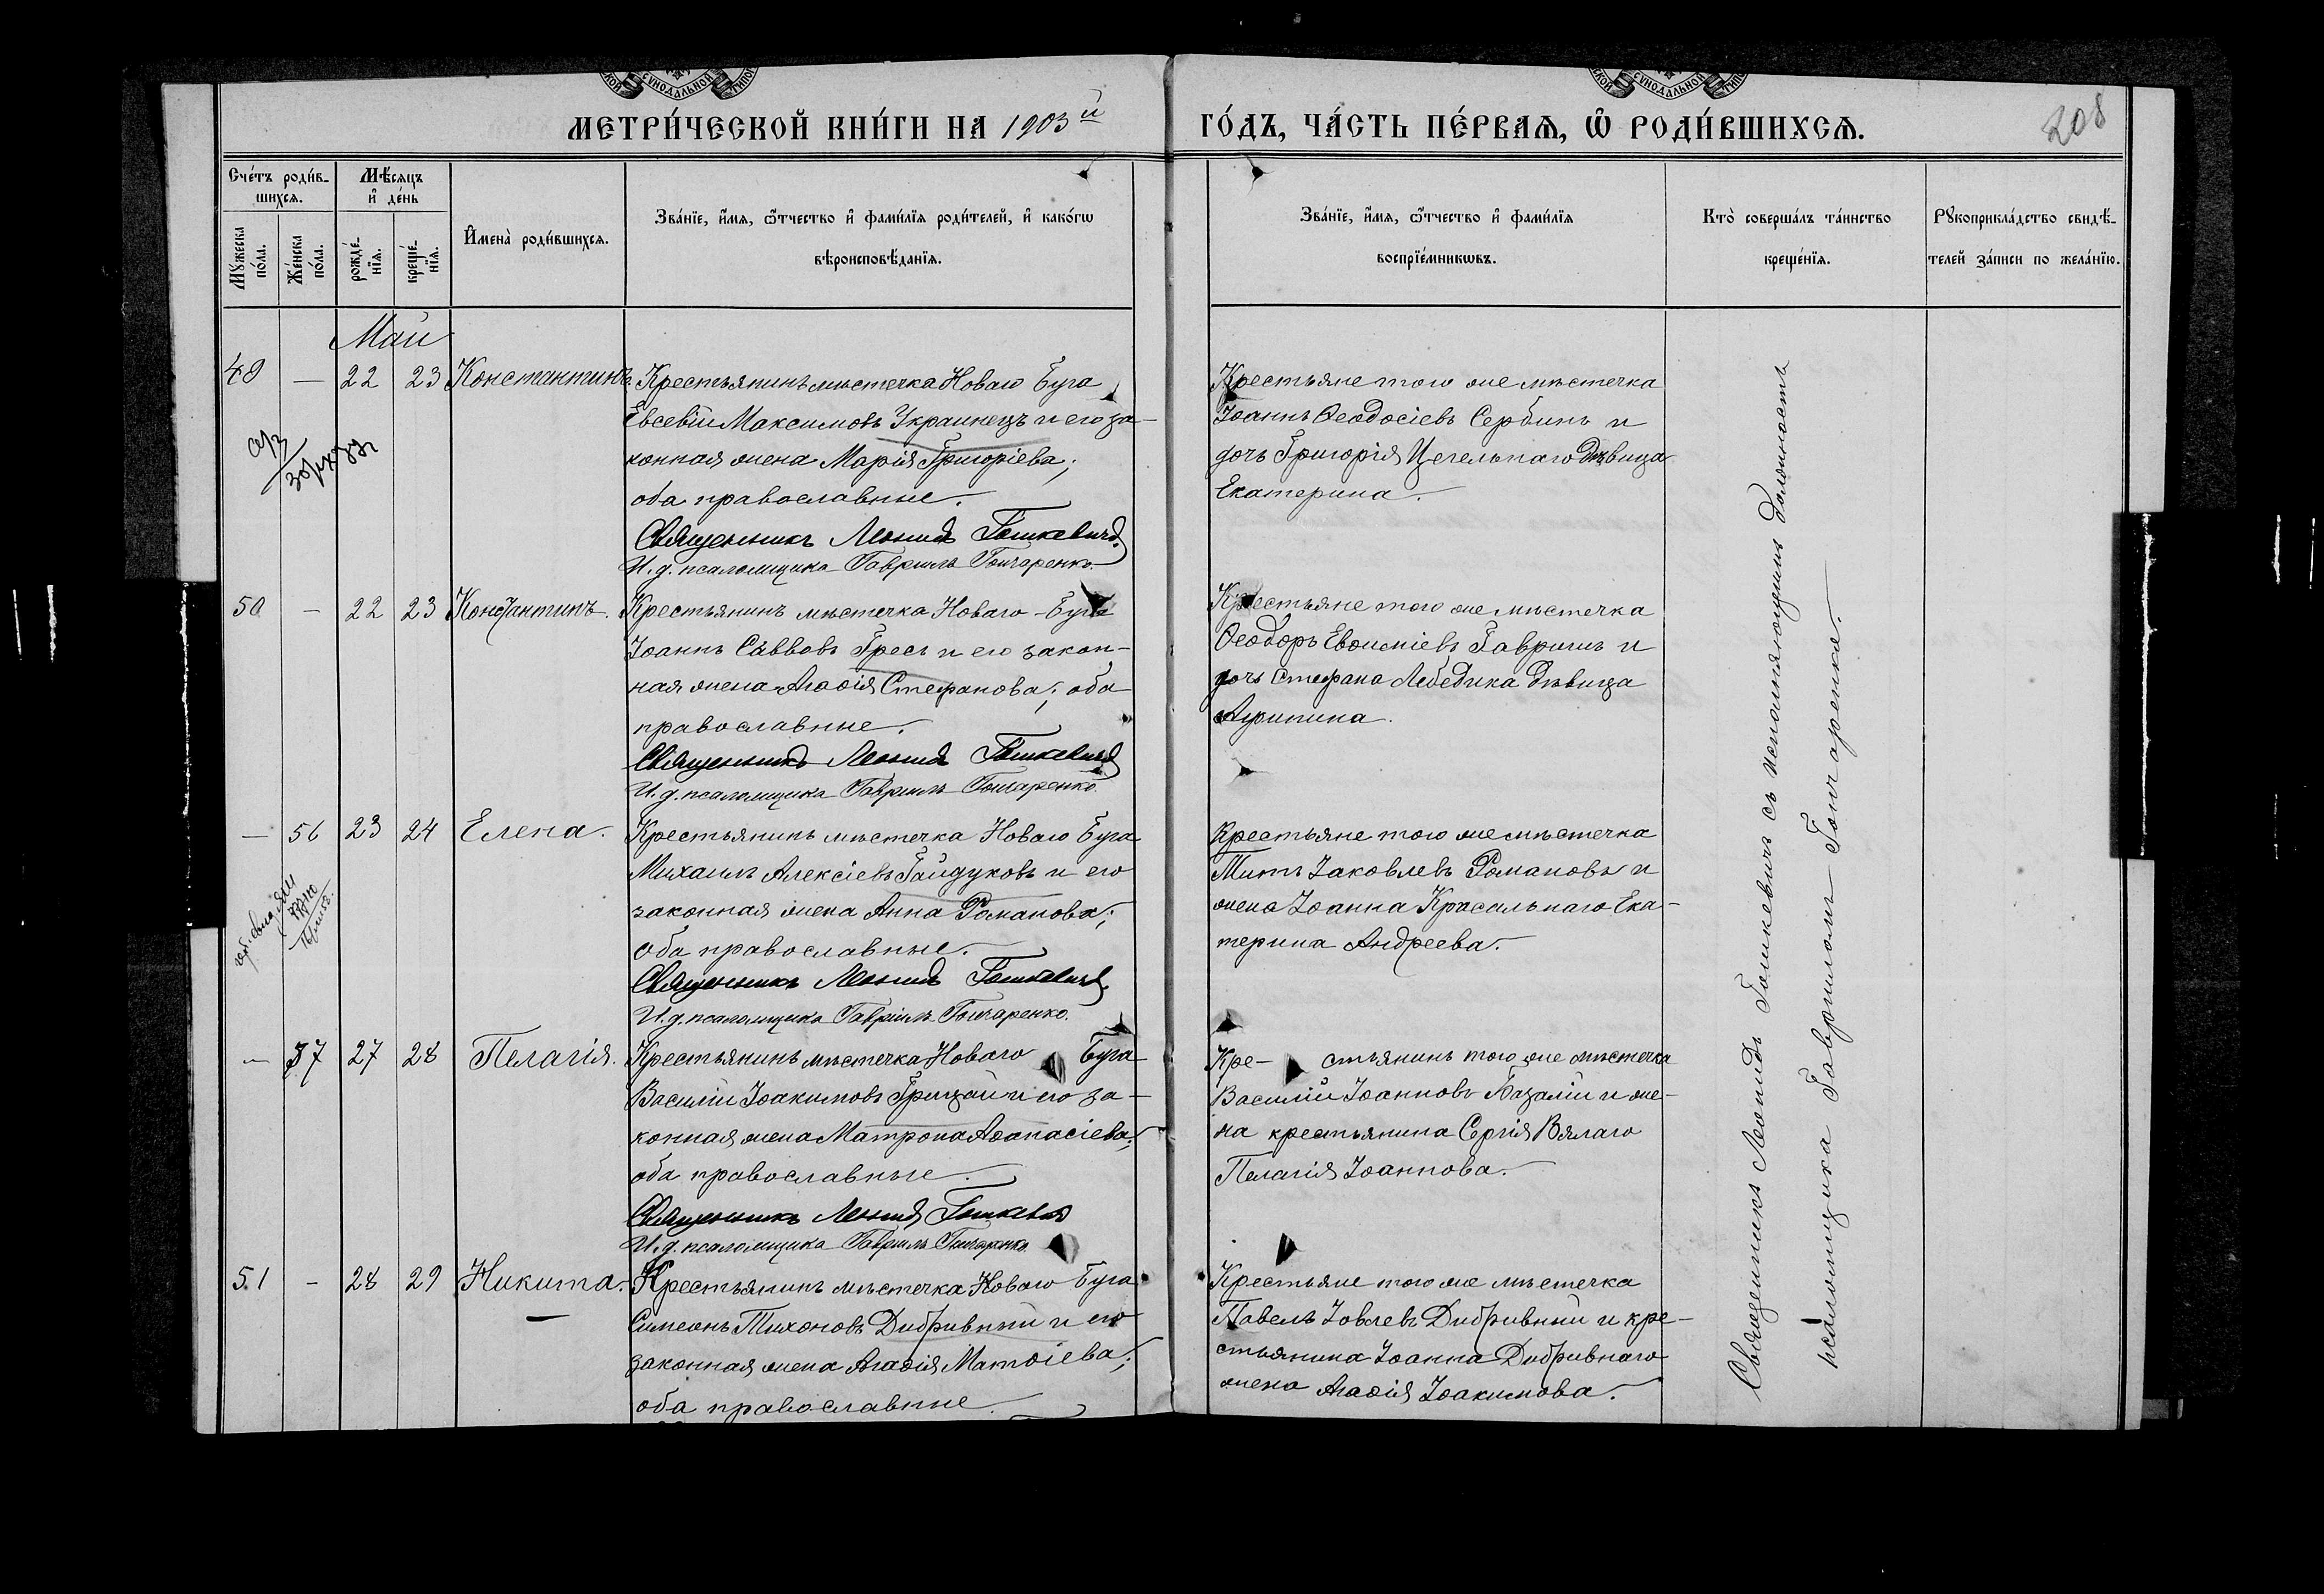 МЕТРИ́ЧЕСКОЙ КНИ́ГИ НА 1903й ГО́ДЪ, ЧА́СТЬ ПЕ́РВАѦ, Ѽ РОДИ́ВШИХСѦ.
208
Сче́тъ роди́в-
шихсѧ.
Мѣ́сѧцъ
и҆ де́нь
Мꙋжеска
по́ла.
Же́нска
по́ла.
рожде́-
нїѧ.
креще́-
нїѧ.
И҆мена̀ роди́вшихсѧ.
Зва́нїе, и҆́мѧ, ѻ҆́тчество и҆ фами́лїѧ роди́телей, и҆ како́гѡ
вѣроисповѣ́данїѧ.
Зва́нїе, и҆́мѧ, ѻ҆́тчество и҆ фами́лїѧ
воспрїе́мникѡвъ.
Кто̀ соверша́лъ та́инство
креще́нїѧ.
Рꙋкоприкла́дство свидѣ́-
телей за́писи по жела́нїю.
Май
49 — 22 23 Константинъ
Крестьянинъ мѣстечка Новаго Буга
Евсевій Максимовъ Украинецъ и его за-
конная жена Марія Григоріева;
оба православные.
Священникъ Леонидъ Гошкевичъ.
И. д. псаломщика Гавріилъ Гончаренко
Крестьяне того же мѣстечка
Іоаннъ Ѳеодосіевъ Сербинъ и
дочь Григорія Цегельнаго дѣвица
Екатерина.
50 — 22 23 Константинъ.
Крестьянинъ мѣстечка Новаго Буга
Іоаннъ Саввовъ Гресь и его закон-
ная жена Агаѳія Стефанова; оба
православные.
Священникъ Леонидъ Гошкевичъ
И. д. псаломщика Гавріилъ Гончаренко.
Крестьяне того же мѣстечка
Ѳеодоръ Евѳиміевъ Гавришъ и
дочь Стефана Лебедика дѣвица
— 56 23 24 Елена.
Крестьянинъ мѣстечка Новаго Буга
Михаилъ Алексіевъ Гайдуковъ и его
законная жена Анна Романова;
оба православные.
Священникъ Леонидъ Гошкевичъ.
И. д. псаломщика Гавріилъ Гончаренко.
Крестьяне того же мѣстечка
Титъ Іаковлевъ Романовъ и
жена Іоанна Красальнаго Ека-
терина Андреева.
— 57 27 28 Пелагія.
Крестьянинъ мѣстечка Новаго Буга
Василій Іоакимовъ Грицай и его за-
конная жена Матрона Аѳанасіева;
оба православные.
Священникъ Леонидъ Гошкевичъ
И. д. псаломщика Гавріилъ Гончаренко.
Кре- стьянинъ того же мѣстечка
Василій Іоанновъ Базалій и же-
на крестьянина Сергія Вялаго
Пелагія Іоаннова.
51 — 28 29 Никита.
Крестьянинъ мѣстечка Новаго Буга
Симеонъ Тихоновъ Дибривный и его
законная жена Агаѳія Матѳіева;
оба православные.
Крестьяне того же мѣстечка
Павелъ Іовлевъ Дибривный и кре-
стьянина Іоанна Дибривнаго
жена Агаѳія Іоакимова.
Священникъ Леонидъ Гошкевичъ съ исполняющимъ должность
псаломщика Гавріиломъ Гончаренко.